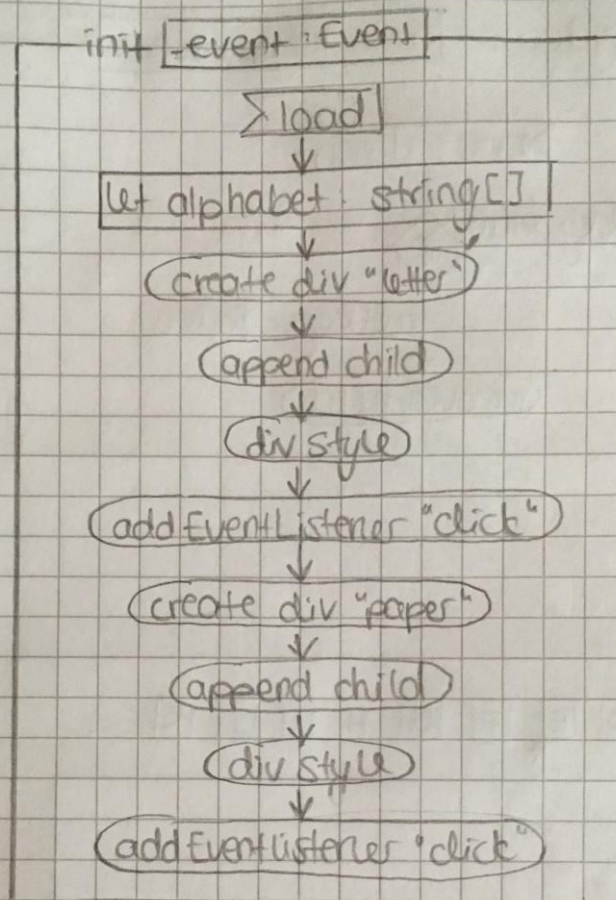 init -event : Event
load
let alphabet : string[]
create div "letter"
append child
div style
addEventListener "click"
create div "paper"
append child
div style
addEventListener "click"